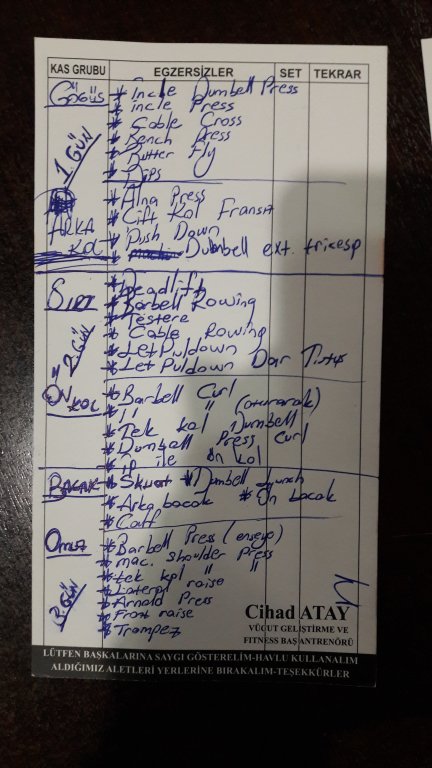 KAS GRUBU EGZERSİZLER SET TEKRAR
GÖĞÜS * İncle Dumbell Press
* incle Press
* Cable Cross
1 GÜN * Bench Press
* Butter Fly
* Dips
* Alna Press
* Çift Kol Fransız
ARKA KOL * Push Down
* Dumbell ext. tricesp
SIRT * Deadlift
* Barbell Rowing
* Testere
2. GÜN * Cable Rowing
* Let Puldown
* Let Puldown Dar Tutuş
ÖN KOL * Barbell Curl
* " " (oturarak)
* Tek kol Dumbell
* Dumbell Press Curl
* ip ile ön kol
BACAK * Skuat * Dumbell
* Arka bacak * Ön bacak
* Calf
Omuz * Barbell Press (enseye)
* mac. shoulder Press
* tek kol " "
* Lateral raise
3. GÜN * Arnold Press
* Front raise
* Trampez
Cihad ATAY
VÜCUT GELİŞTİRME VE
FITNESS BAŞ ANTRENÖRÜ
LÜTFEN BAŞKALARINA SAYGI GÖSTERELİM-HAVLU KULLANALIM
ALDIĞIMIZ ALETLERİ YERLERİNE BIRAKALIM-TEŞEKKÜRLER